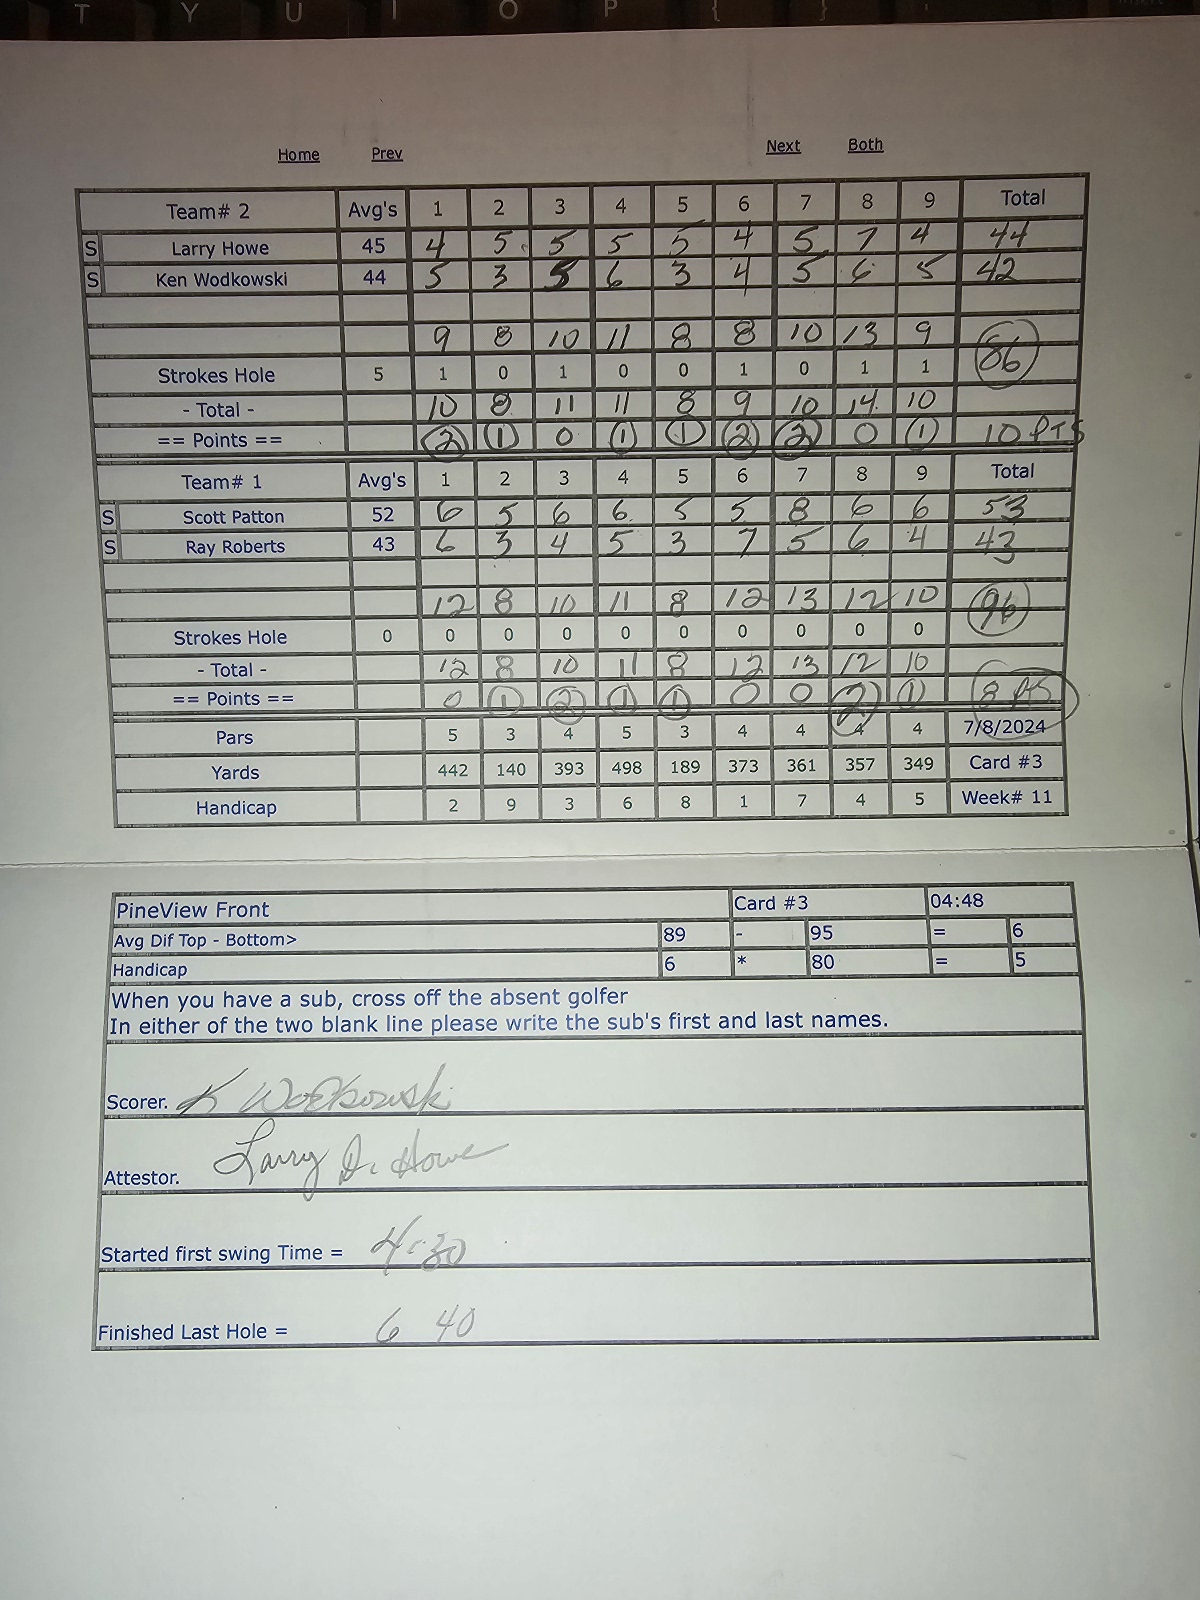 T Y U I O P { }
Home Prev Next Both
Team# 2 Avg's 1 2 3 4 5 6 7 8 9 Total
S Larry Howe 45 4 5 5 5 5 4 5 7 4 44
S Ken Wodkowski 44 5 3 5 6 3 4 5 6 5 42
9 8 10 11 8 8 10 13 9 86
Strokes Hole 5 1 0 1 0 0 1 0 1 1
- Total - 10 8 11 11 8 9 10 14 10
== Points == 2 1 0 1 1 2 2 0 1 10 PTS
Team# 1 Avg's 1 2 3 4 5 6 7 8 9 Total
S Scott Patton 52 6 5 6 6 5 5 8 6 6 53
S Ray Roberts 43 6 3 4 5 3 7 5 6 4 43
12 8 10 11 8 12 13 12 10 96
Strokes Hole 0 0 0 0 0 0 0 0 0 0
- Total - 12 8 10 11 8 12 13 12 10
== Points == 0 1 2 1 1 0 0 2 1 8 PTS
Pars 5 3 4 5 3 4 4 4 4 7/8/2024
Yards 442 140 393 498 189 373 361 357 349 Card #3
Handicap 2 9 3 6 8 1 7 4 5 Week# 11
PineView Front Card #3 04:48
Avg Dif Top - Bottom> 89 - 95 = 6
Handicap 6 * 80 = 5
When you have a sub, cross off the absent golfer
In either of the two blank line please write the sub's first and last names.
Scorer. K Wodkowski
Attestor. Larry D. Howe
Started first swing Time = 4:30
Finished Last Hole = 6 40